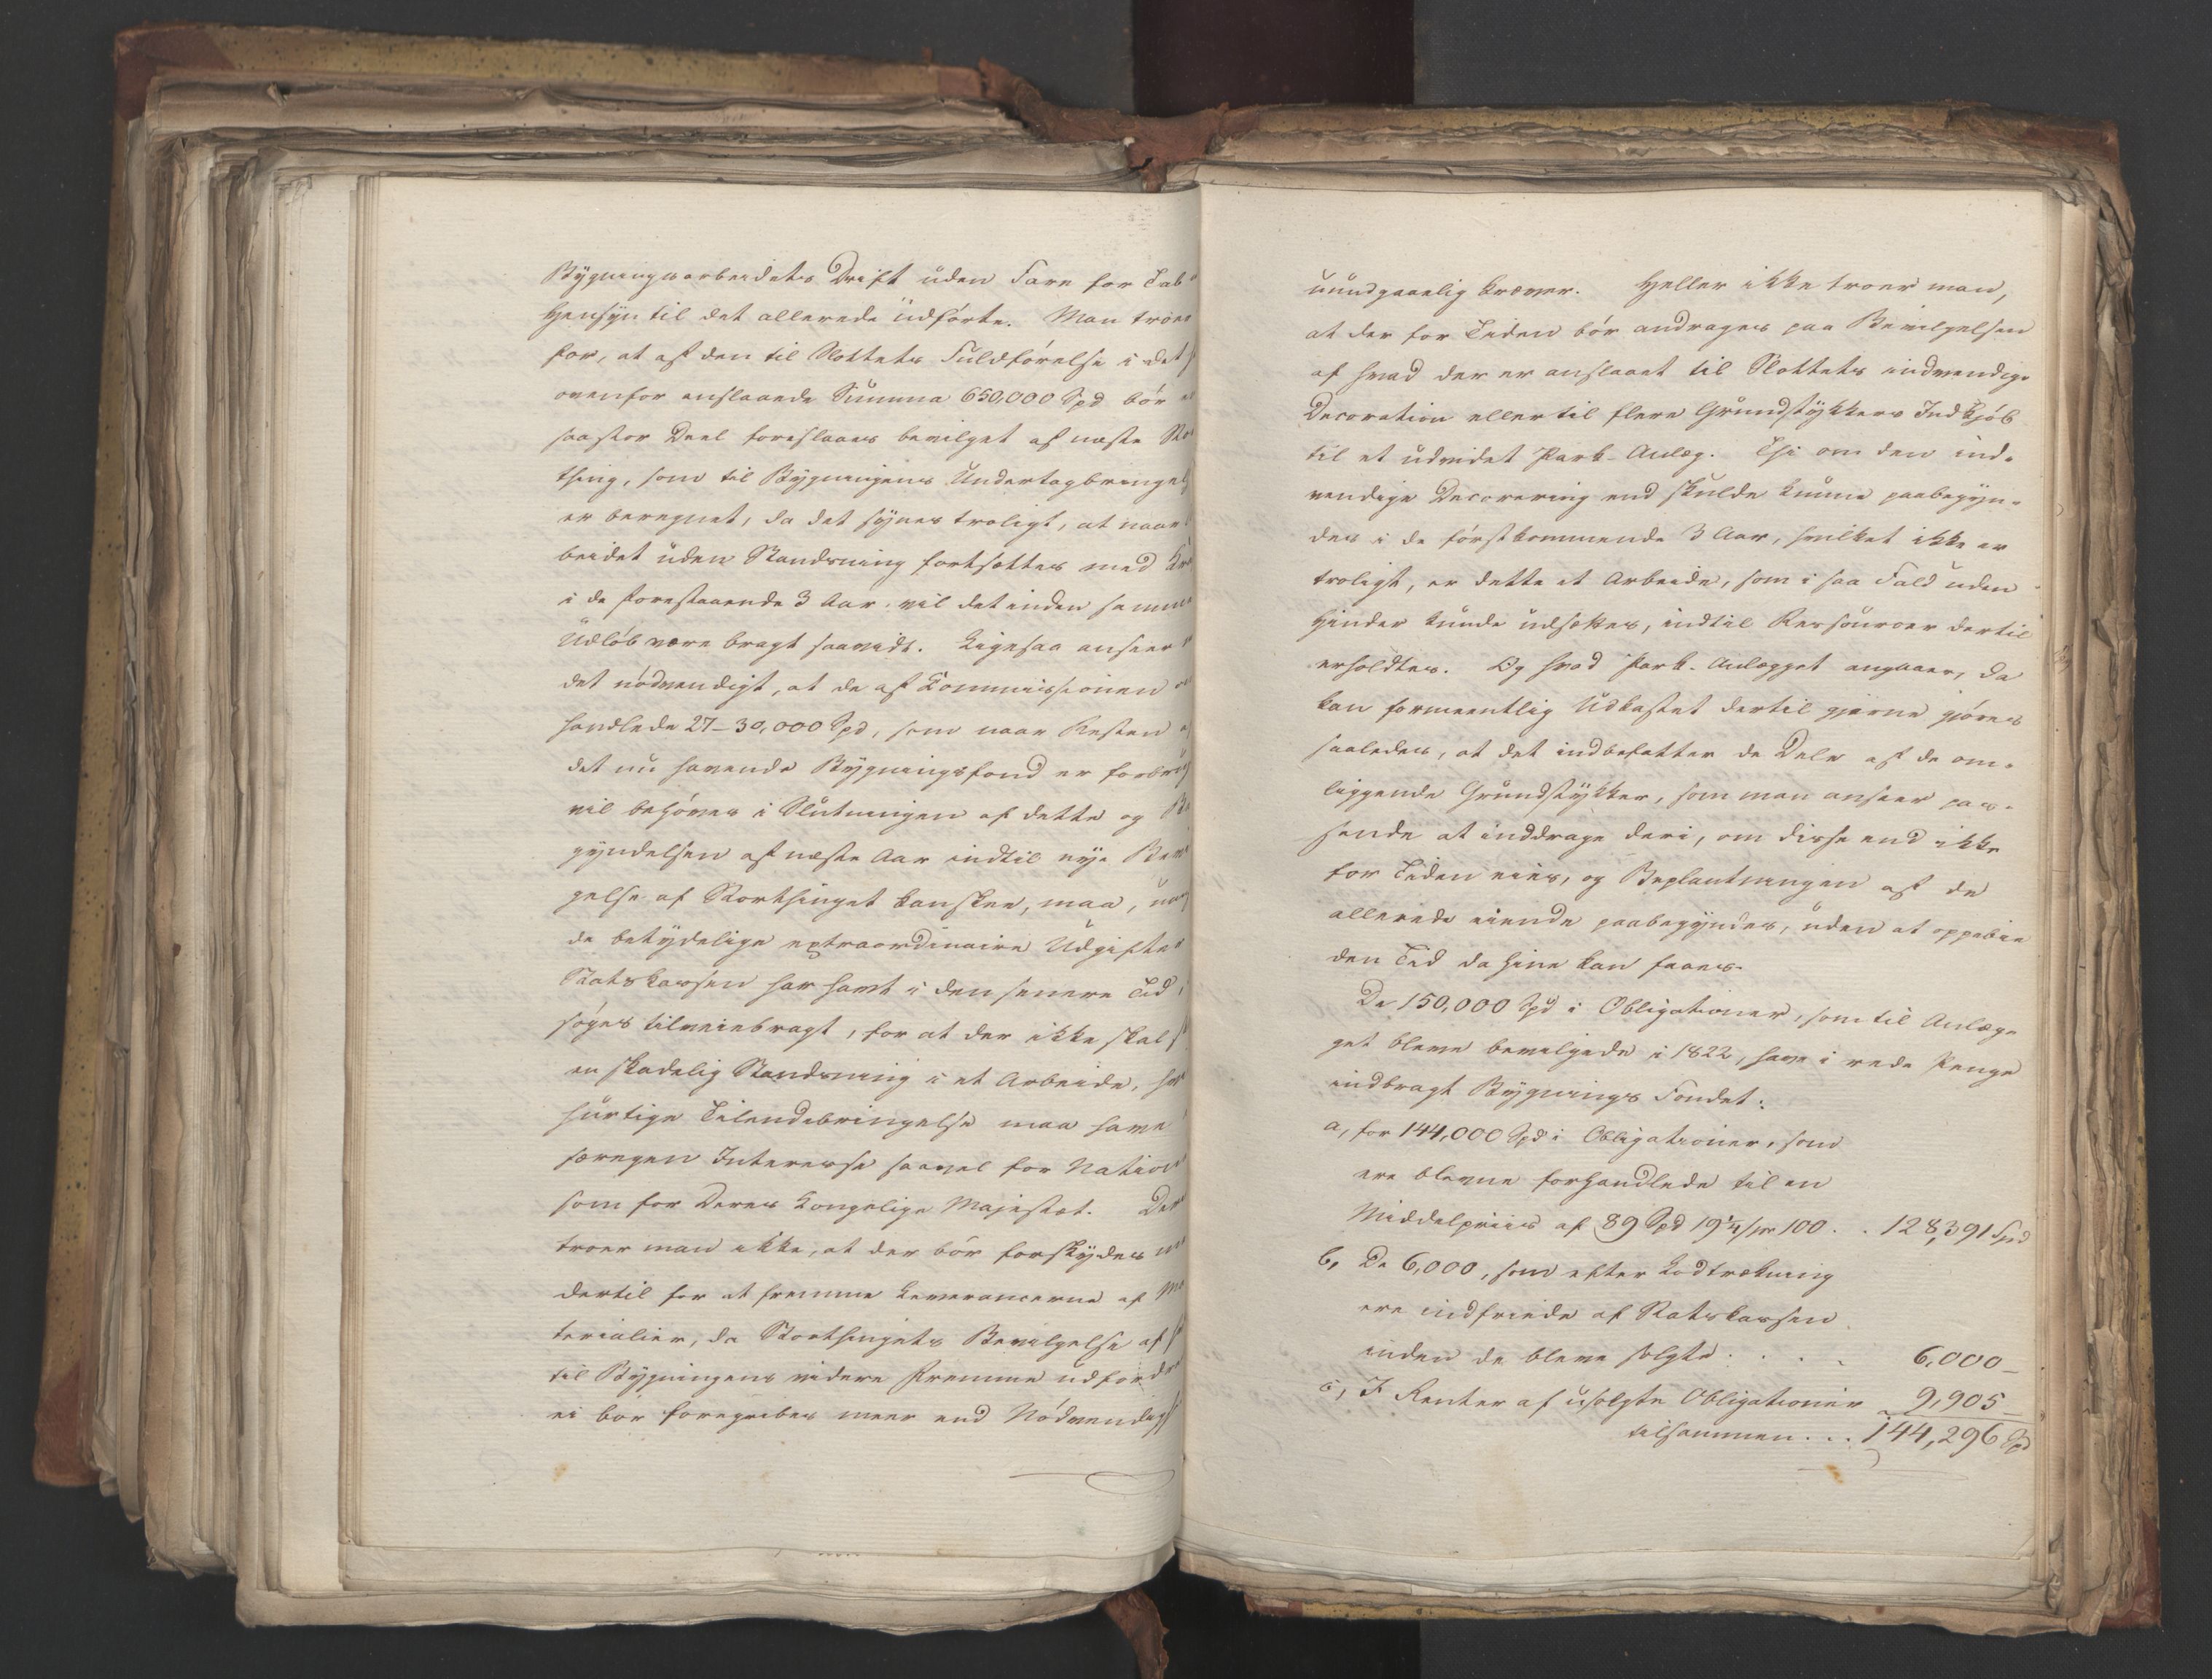 Bygningsarbeidets Drift uden Fare for Tab i
Hensyn til det allerede udførte. Man troer
for, at af den til Slottets Fuldførelse i det
ovenfor anslaaede Summa 650,000 Spd bør
saastor Deel foreslaaes bevilget af næste Stor
thing, som til Bygningens Undertagbringels
er beregnet, da det synes troligt, at naar
beidet uden Standsning fortsættes med
i de forestaaende 3 Aar, vil det inden samme
Udløb være bragt saavidt. Ligesaa anseer
det nødvendigt, at de af Commissionen
handlede 27-30,000 Spd, som naar Resten
det nu havende Bygningsfond er forbrug
vil behøves i Slutningen af dette og Be
gyndelsen af næste Aar indtil nye Bevil
gelse af Storthinget kan skee, maa, uag
de betydelige extraordinaire Udgifter
Statskassen har havt i den senere Tid,
søges tilveiebragt, for at der ikke skal
en skadelig Standsning i et Arbeide, hvis
hurtige Tilendebringelse maa have
særegen Interesse saavel for Nation
som for Deres Kongelige Majestæt. Der
troer man ikke, at der bør forskydes
dertil for at fremme Leverancerne af Ma
terialier, da Storthingets Bevilgelse af
til Bygningens videre Fremme udfordre
ei bør foregribes meer end Nødvendigh
uundgaaelig kræver. Heller ikke troer man,
at der for Tiden bør andrages paa Bevilgelsen
af hvad der er anslaaet til Slottets indvendige
Decoration eller til flere Grundstykkers Indkjøb
til et udvidet Park-Anlæg. Thi om den ind-
vendige Decorering end skulde kunne paabegyn-
des i de førstkommende 3 Aar, hvilket ikke er
troligt, er dette et Arbeide, som i saa Fald uden
Hinder kunde udsættes, indtil Ressourcer dertil
erholdtes. Og hvad Park-Anlægget angaaer, da
kan formeentlig Udkastet dertil gjerne gjøres
saaledes, at det indbefatter de Dele af de om-
liggende Grundstykker, som man anseer pas-
sende at inddrage deri, om disse end ikke
for Tiden eies, og Beplantningen af de
allerede eiende paabegyndes, uden at oppebie
den Tid da hine kan faaes.
De 150,000 Spd i Obligationer, som til Anlæg-
get bleve bevilgede i 1822, have i rede Penge
indbragt Bygnings Fondet:
a, for 144,000 Spd i Obligationer, som
ere blevne forhandlede til en
Middelpriis af 89 Spd 19 1/4 s pr 100 . . 128,391 Spd
b, De 6,000, som efter Lodtrækning
ere indfriede af Statskassen
inden de bleve solgte . . . . 6,000 —
c, I Renter af usolgte Obligationer 9,905 —
tilsammen . . . 144,296 Spd